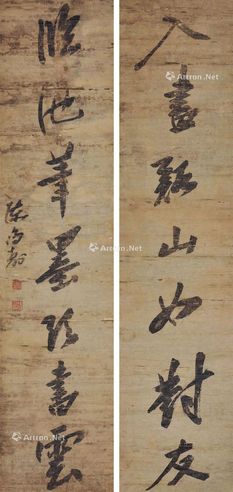 入畫谿山如對友
臨池筆墨書雲
陳
Artron.Net
Artron.Net
Artron.Net
Artron.Net
Artron.Net
Artron.Net